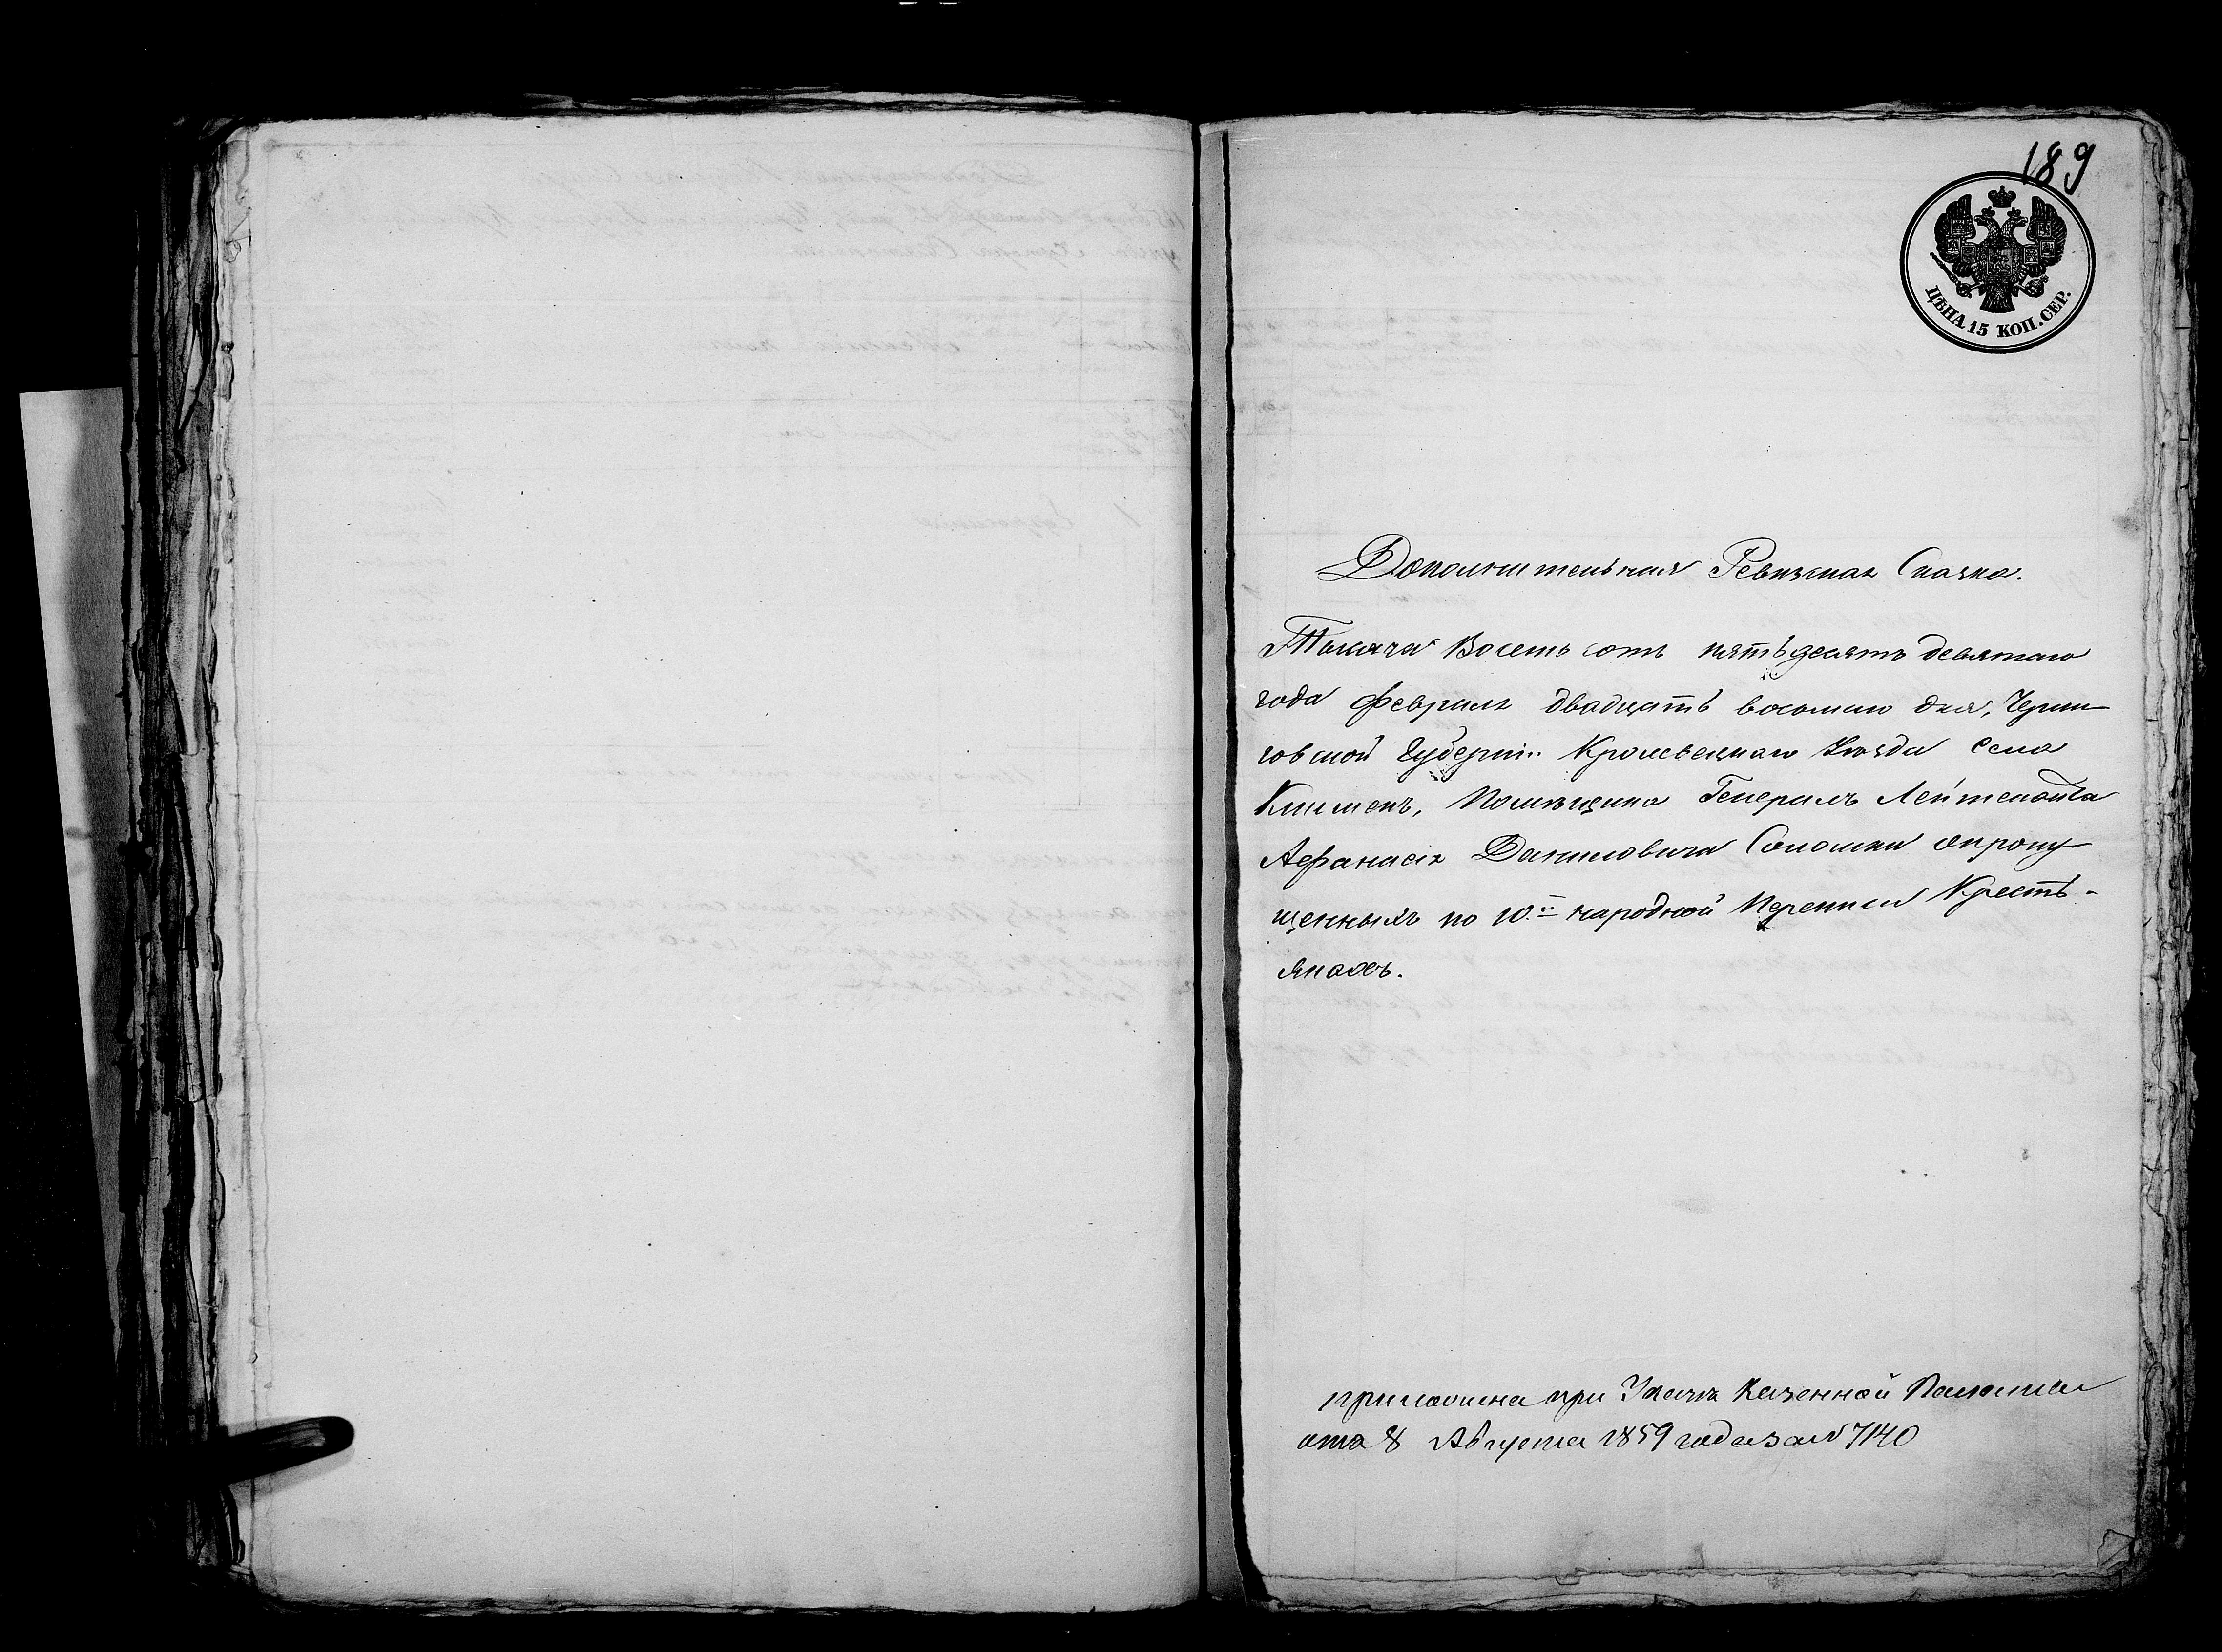 189
ЦѢНА 15 КОП. СЕР.
Дополнительная Ревизская Сказка.
Тысяча Восемь сотъ пятьдесятъ девятаго
года Февраля двадцать восьмаго дня, Черни-
говской Губерніи Кролевецкаго Уѣзда Села
Помѣщика Генералъ Лейтенанта
Афанасія Даниловича Соломки о пропу-
щенныхъ по 10й народной Переписи Кресть-
янахъ.
приложена при Указѣ Казенной Палаты
отъ 8 Августа 1859 года за № 7140